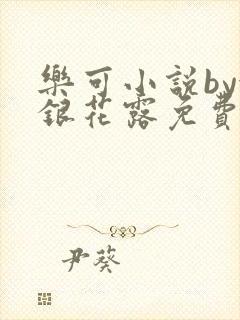 樂可小説by
銀花露免費
尹葵